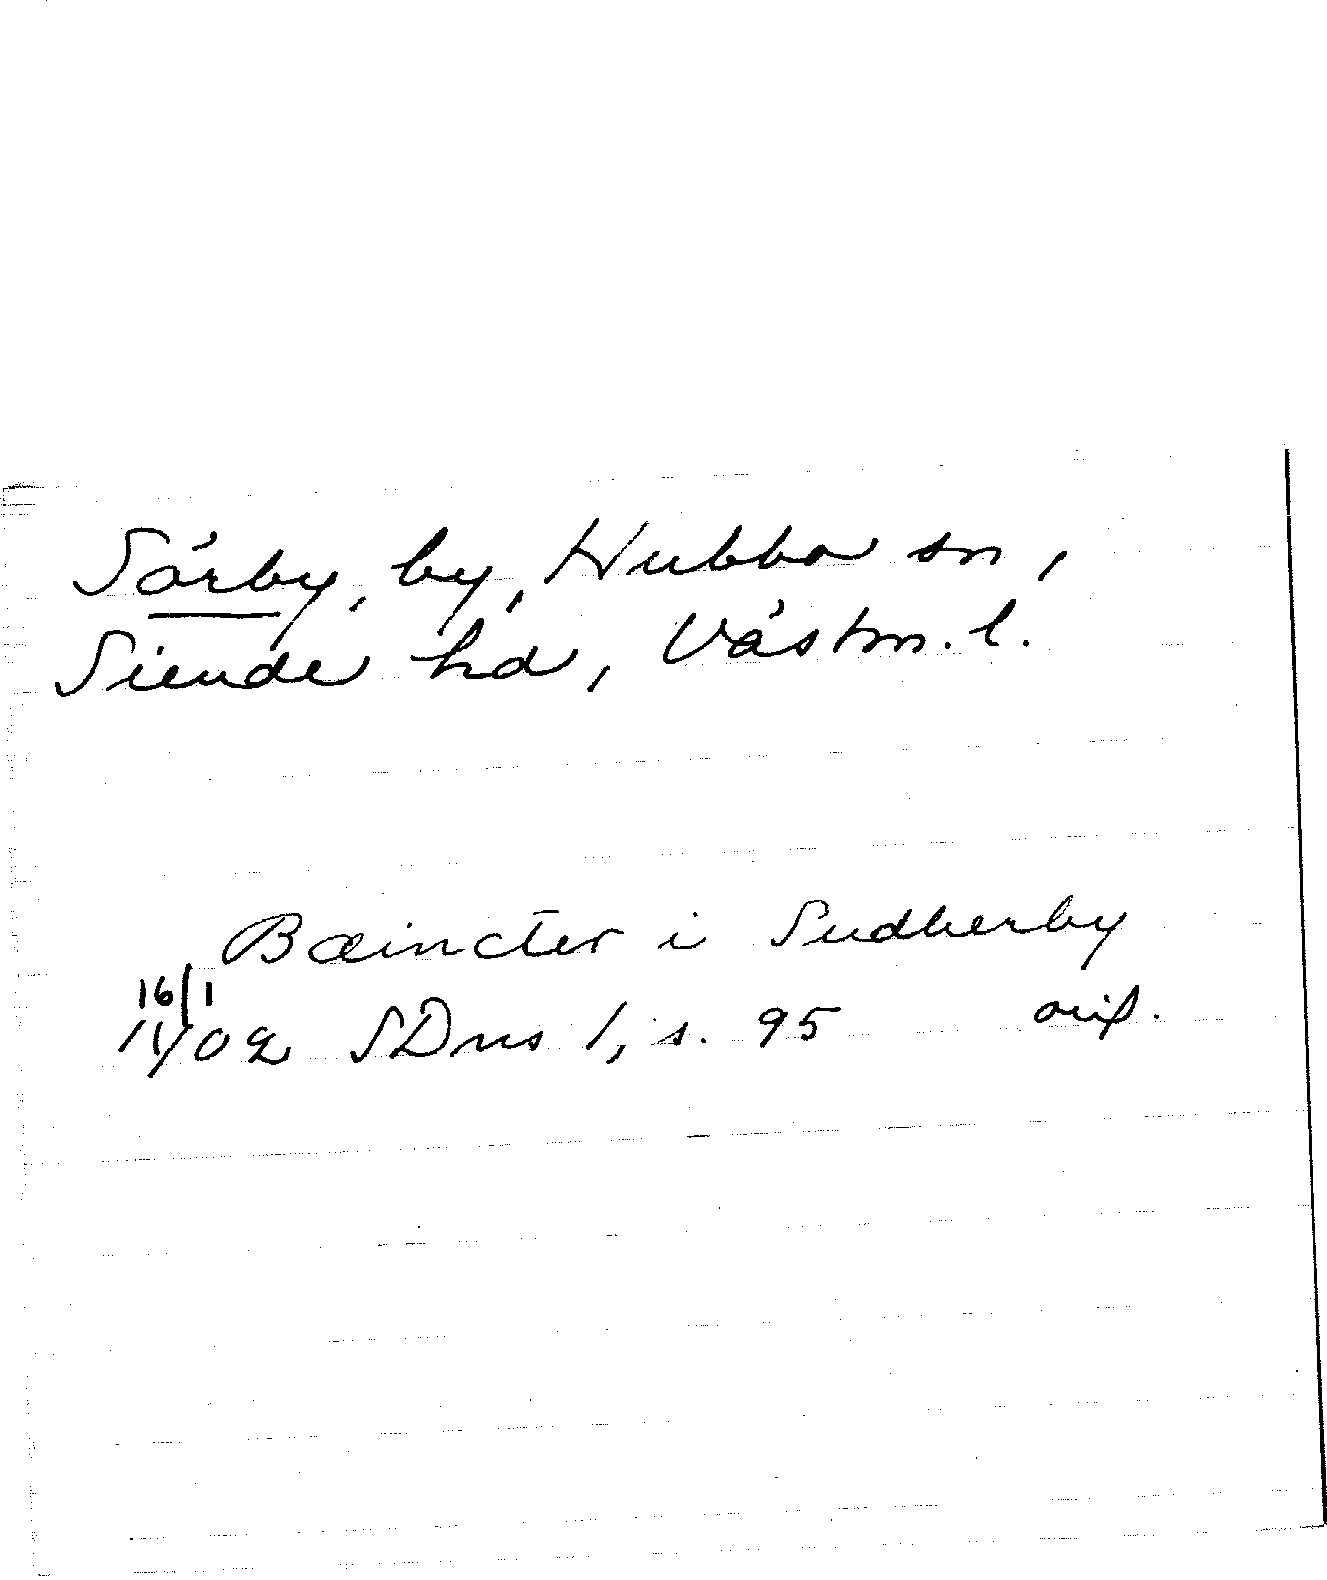 Sörby, by, Hubbo sn,
Siende hd, Västm. l.
Bæincter i Sudherby
16/1
1402 SDns 1, s. 95 orig.